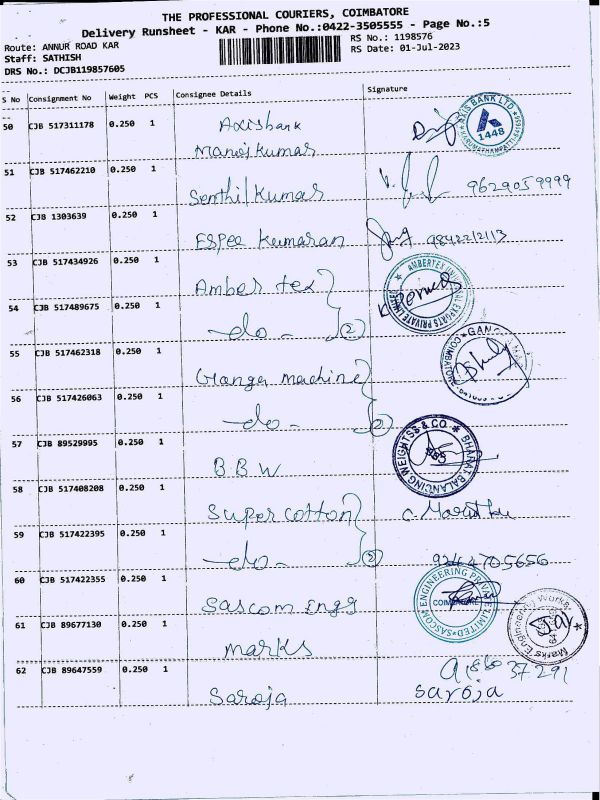 THE PROFESSIONAL COURIERS, COIMBATORE
Delivery Runsheet - KAR - Phone No.:0422-3505555 - Page No.:5
Route: ANNUR ROAD KAR
Staff: SATHISH
DRS No.: DCJB119857605
RS No.: 1198576
RS Date: 01-Jul-2023
S No Consignment No Weight PCS Consignee Details Signature
50 CJB 517311178 0.250 1 Axisbank
AXIS BANK LTD 1448
Manoj kumar
51 CJB 517462210 0.250 1
Senthil kumar 9629059999
52 CJB 1303639 0.250 1
ESPee kumaran 9842212113
53 CJB 517434926 0.250 1
Amber tex
54 CJB 517489675 0.250 1
-do- (2)
55 CJB 517462318 0.250 1
Ganga machine
56 CJB 517426063 0.250 1
-do- (2)
57 CJB 89529995 0.250 1
BBW
BHARAT BALANCING WEIGHTSS & CO.
58 CJB 517408208 0.250 1
Super cotton
59 CJB 517422395 0.250 1
-do- (2)
60 CJB 517422355 0.250 1
Sascom Engg
SASCOM ENGINEERING PRIVATE LIMITED
COIMBATORE
61 CJB 89677130 0.250 1
Marks
Marks Engineering Works
62 CJB 89647559 0.250 1
Saroja
saroja